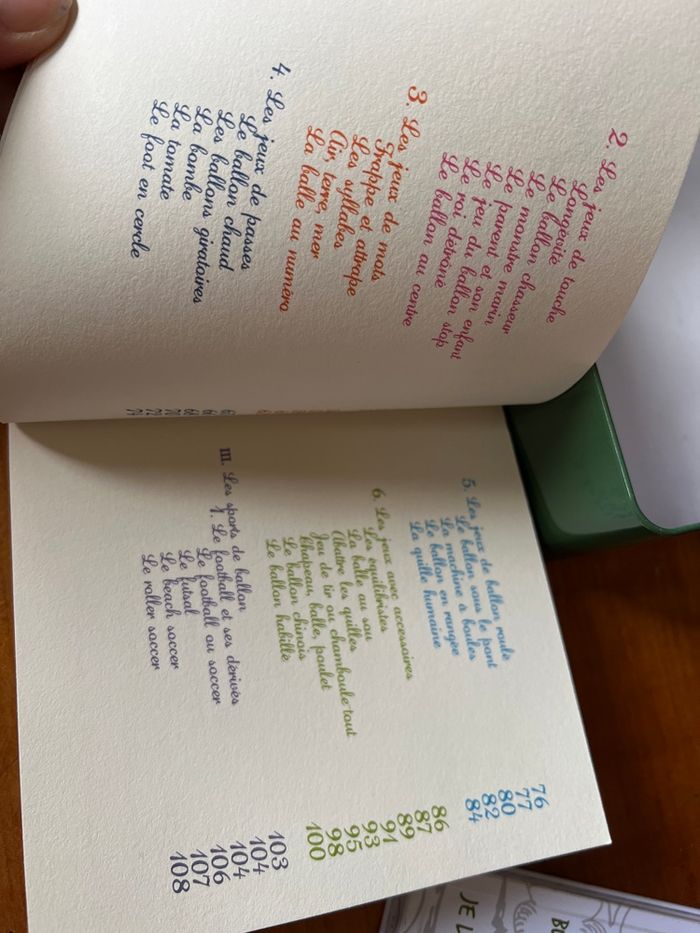 2. Les jeux de touche
Longévité
Le ballon chasseur
Le monstre marin
Le parent et son enfant
Le jeu du ballon stop
Le roi détrôné
Le ballon au centre
3. Les jeux de mots
Frappe et attrape
Les syllabes
Air, terre, mer
La balle au numéro
4. Les jeux de passes
Le ballon chaud
Les ballons giratoires
La bombe 68
La tomate 72
Le foot en cercle 74
5. Les jeux de ballon roulé 76
Le ballon sous le pont 77
La machine à boules 80
Le ballon en rangée 82
La quille humaine 84
6. Les jeux avec accessoires 86
Les équilibristes 87
La balle au sou 89
Abattre les quilles 91
Jeu de tir ou chamboule-tout 93
Chapeau, balle, poulet 95
Le ballon chinois 98
Le ballon habillé 100
III. Les sports de ballon 103
1. Le football et ses dérivés 104
Le football ou soccer 104
Le futsal 106
Le beach soccer 107
Le roller soccer 108
JE